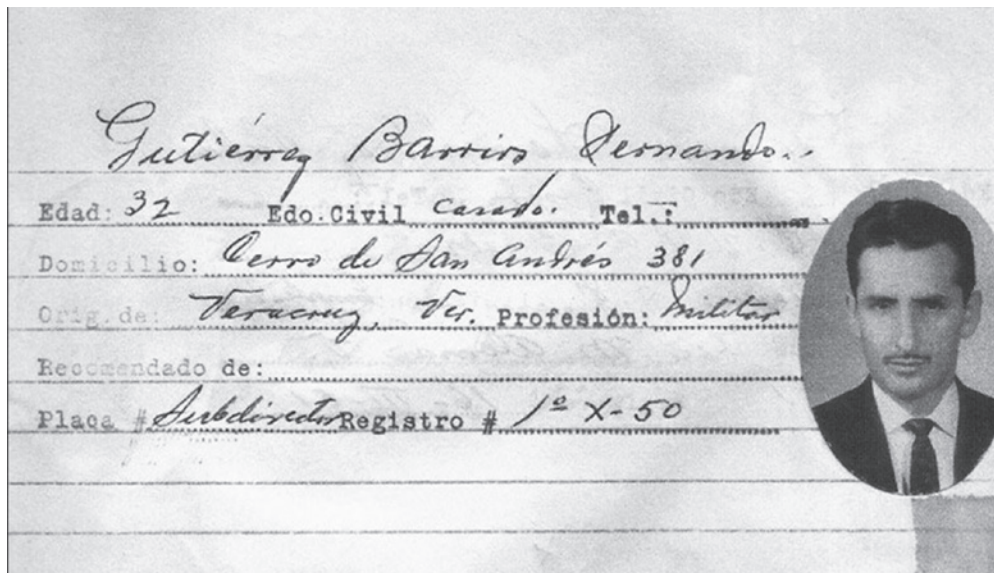 Gutiérrez Barrios Fernando.
Edad: 32 Edo.Civil casado. Tel.:
Domicilio: Cerro de San Andrés 381
Orig.de: Veracruz, Ver. Profesión: Militar
Recomendado de:
Placa # Subdirector Registro # 1º X-50